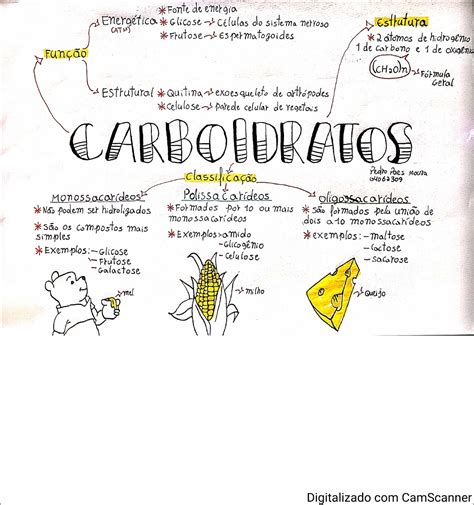 Função
Energética
(ATP)
* Fonte de energia
* Glicose → Células do sistema nervoso
* Frutose → Espermatozoides
Estrutural
* Quitina → exoesqueleto de artrópodes
* Celulose → Parede celular de vegetais
Estrutura
* 2 átomos de hidrogênio
1 de carbono e 1 de oxigênio
(CH2O)n
Fórmula
Geral
CARBOIDRATOS
Pedro Paes Moura
Classificação
Monossacarídeos
* Não podem ser hidroligados
* São os compostos mais
simples
* Exemplos: - Glicose
- Frutose
- Galactose
mel
Polissacarídeos
* Formados por 10 ou mais
monossacarídeos
* Exemplos → amido
- Glicogênio
- Celulose
milho
Oligossacarídeos
* são formados pela união de
dois a 10 monossacarídeos
* exemplos: - maltose
- lactose
- sacarose
Queijo
Digitalizado com CamScanner